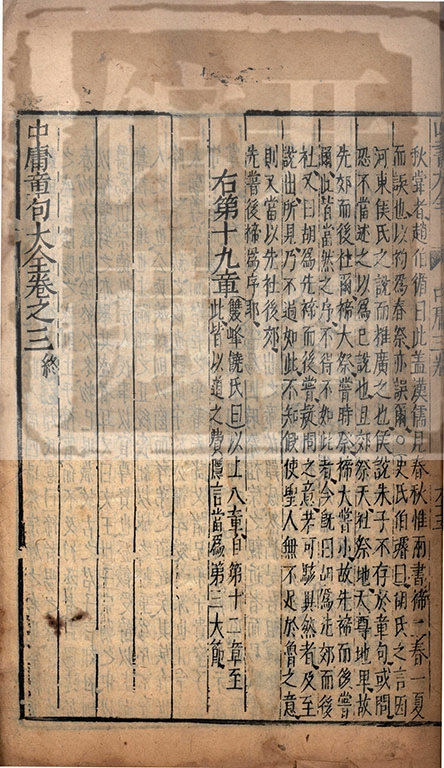 秋嘗者趙伯循曰此蓋漢儒見春秋惟兩書禘一春一夏
而誤也以礿為春祭亦誤爾○史氏伯璿曰胡氏之言因
河東侯氏之說而推廣之也侯說朱子不存於章句或問
恐不當述之以為己說也且郊祭天社祭地天尊地卑故
先郊而後社爾禘大祭嘗時祭禘大嘗小故先禘而後嘗
爾此皆當然之序不得不如此者今既曰胡為先郊而後
社又曰胡為先禘而後嘗疑問之意若可駭異然者及至
說出所見乃不過如此不知假使聖人無不足於魯之意
則又當以先社後郊
先嘗後禘為序耶
右第十九章
雙峰饒氏曰以上八章自第十二章至
此皆以道之費隱言當為第三大節
中庸章句大全卷之三
終